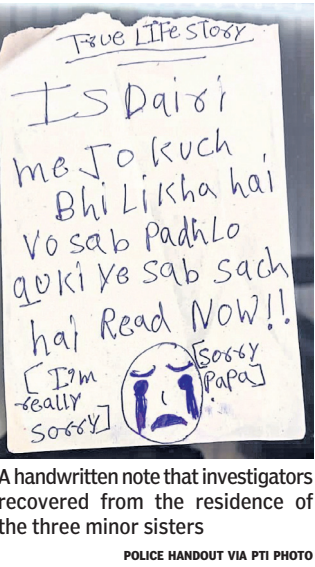 True LIFe story
Is Dairi
me Jo kuch
Bhi Likha hai
Vo sab Padh Lo
quki ye sab sach
hai Read NOW!!
[I'm
really
sorry]
[sorry
Papa]
A handwritten note that investigators
recovered from the residence of
the three minor sisters
POLICE HANDOUT VIA PTI PHOTO